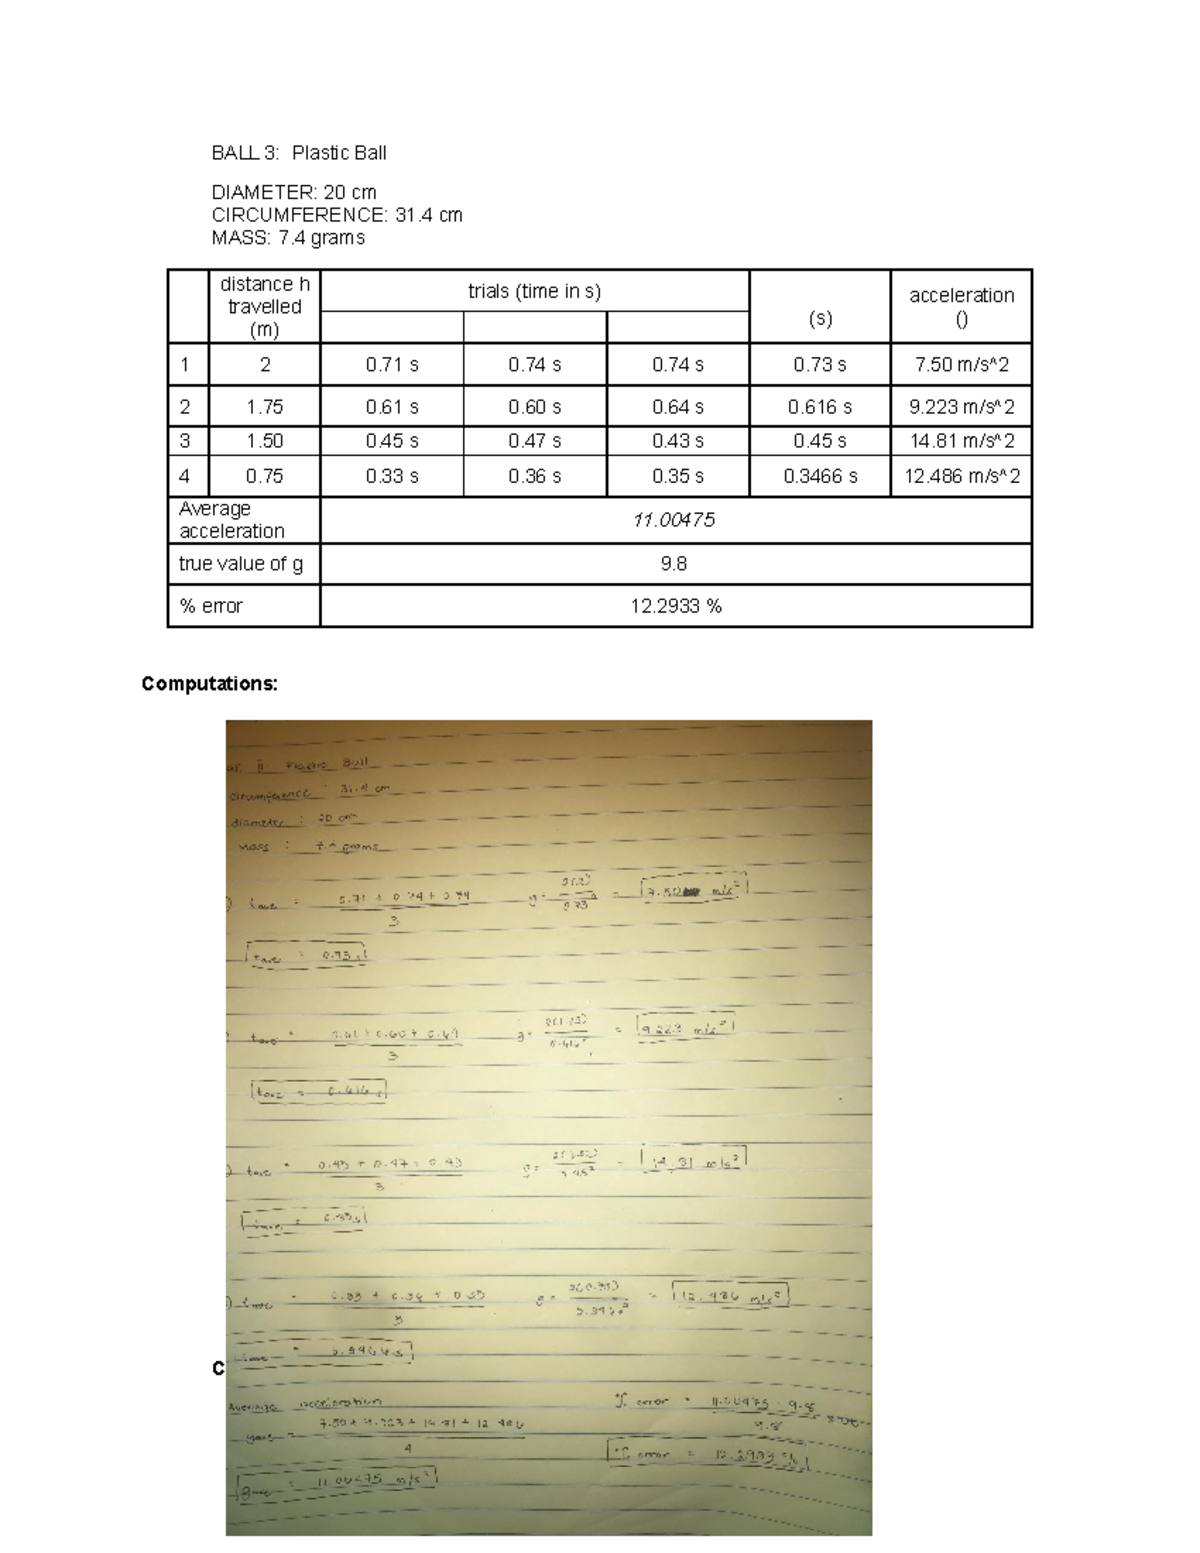 BALL 3: Plastic Ball
DIAMETER: 20 cm
CIRCUMFERENCE: 31.4 cm
MASS: 7.4 grams
distance h travelled (m) trials (time in s) (s) acceleration ()
1 2 0.71 s 0.74 s 0.74 s 0.73 s 7.50 m/s^2
2 1.75 0.61 s 0.60 s 0.64 s 0.616 s 9.223 m/s^2
3 1.50 0.45 s 0.47 s 0.43 s 0.45 s 14.81 m/s^2
4 0.75 0.33 s 0.36 s 0.35 s 0.3466 s 12.486 m/s^2
Average acceleration 11.00475
true value of g 9.8
% error 12.2933 %
Computations:
II Plastic Ball
circumference : 31.4 cm
diameter : 20 cm
mass : 7.4 grams
tave = 0.71 + 0.74 + 0.74 / 3 g = 2(2) / 0.73 = 7.50 m/s²
tave = 0.73 s
tave = 0.61 + 0.60 + 0.64 / 3 g = 2(1.75) / 0.616² = 9.223 m/s²
tave = 0.616 s
tave = 0.45 + 0.47 + 0.43 / 3 g = / 0.45² = 14.81 m/s²
tave =
tave = 0.33 + 0.36 + 0.35 / 3 g = = 12.486 m/s²
C tave = 0.3466 s
Average acceleration % error = 11.00475 - 9.8 / 9.8
gave = 7.50 + 9.223 + 14.81 + 12.486 / 4 % error = 12.2933 %
gave = 11.00475 m/s²